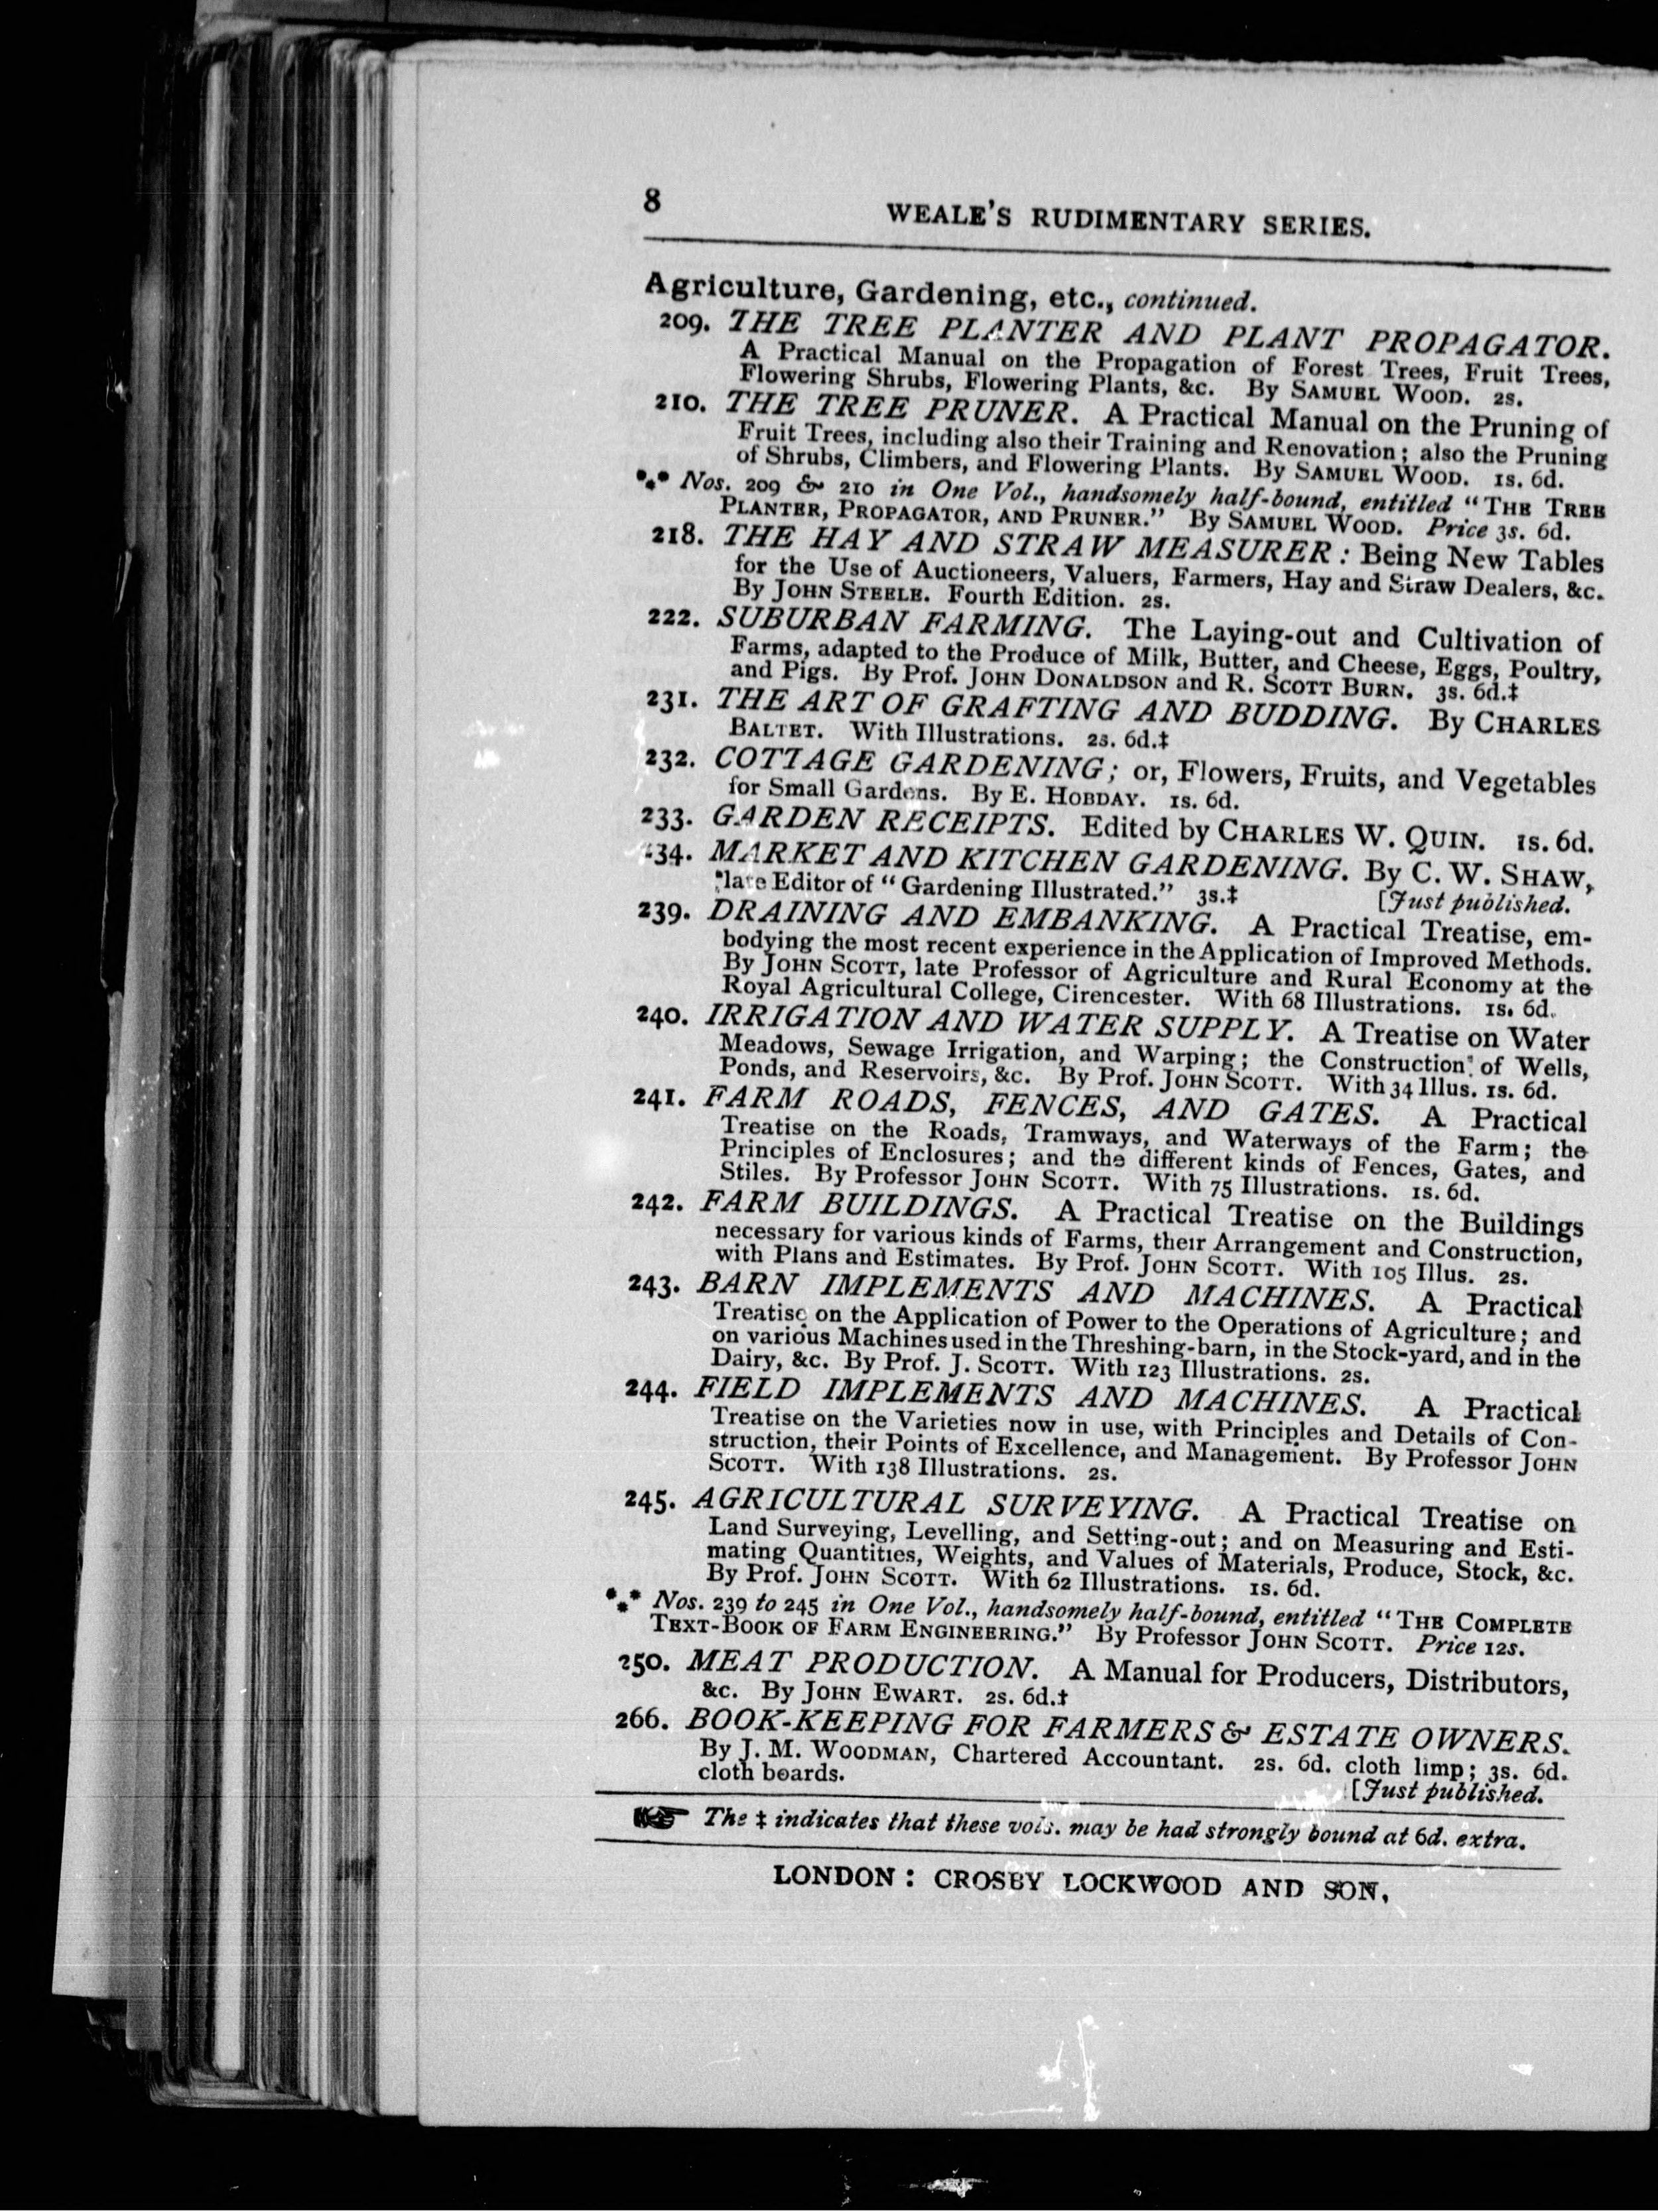 8
WEALE'S RUDIMENTARY SERIES.
Agriculture, Gardening, etc., continued.
209. THE TREE PLANTER AND PLANT PROPAGATOR.
A Practical Manual on the Propagation of Forest Trees, Fruit Trees,
Flowering Shrubs, Flowering Plants, &c. By SAMUEL WOOD. 2s.
210. THE TREE PRUNER. A Practical Manual on the Pruning of
Fruit Trees, including also their Training and Renovation; also the Pruning
of Shrubs, Climbers, and Flowering Plants. By SAMUEL WOOD. 1s. 6d.
*⁎* Nos. 209 & 210 in One Vol., handsomely half-bound, entitled "THE TREE
PLANTER, PROPAGATOR, AND PRUNER." By SAMUEL WOOD. Price 3s. 6d.
218. THE HAY AND STRAW MEASURER: Being New Tables
for the Use of Auctioneers, Valuers, Farmers, Hay and Straw Dealers, &c.
By JOHN STEELE. Fourth Edition. 2s.
222. SUBURBAN FARMING. The Laying-out and Cultivation of
Farms, adapted to the Produce of Milk, Butter, and Cheese, Eggs, Poultry,
and Pigs. By Prof. JOHN DONALDSON and R. SCOTT BURN. 3s. 6d.‡
231. THE ART OF GRAFTING AND BUDDING. By CHARLES
BALTET. With Illustrations. 2s. 6d.‡
232. COTTAGE GARDENING; or, Flowers, Fruits, and Vegetables
for Small Gardens. By E. HOBDAY. 1s. 6d.
233. GARDEN RECEIPTS. Edited by CHARLES W. QUIN. 1s. 6d.
234. MARKET AND KITCHEN GARDENING. By C. W. SHAW,
late Editor of "Gardening Illustrated." 3s.‡ [Just published.
239. DRAINING AND EMBANKING. A Practical Treatise, em-
bodying the most recent experience in the Application of Improved Methods.
By JOHN SCOTT, late Professor of Agriculture and Rural Economy at the
Royal Agricultural College, Cirencester. With 68 Illustrations. 1s. 6d.
240. IRRIGATION AND WATER SUPPLY. A Treatise on Water
Meadows, Sewage Irrigation, and Warping; the Construction of Wells,
Ponds, and Reservoirs, &c. By Prof. JOHN SCOTT. With 34 Illus. 1s. 6d.
241. FARM ROADS, FENCES, AND GATES. A Practical
Treatise on the Roads, Tramways, and Waterways of the Farm; the
Principles of Enclosures; and the different kinds of Fences, Gates, and
Stiles. By Professor JOHN SCOTT. With 75 Illustrations. 1s. 6d.
242. FARM BUILDINGS. A Practical Treatise on the Buildings
necessary for various kinds of Farms, their Arrangement and Construction,
with Plans and Estimates. By Prof. JOHN SCOTT. With 105 Illus. 2s.
243. BARN IMPLEMENTS AND MACHINES. A Practical
Treatise on the Application of Power to the Operations of Agriculture; and
on various Machines used in the Threshing-barn, in the Stock-yard, and in the
Dairy, &c. By Prof. J. SCOTT. With 123 Illustrations. 2s.
244. FIELD IMPLEMENTS AND MACHINES. A Practical
Treatise on the Varieties now in use, with Principles and Details of Con-
struction, their Points of Excellence, and Management. By Professor JOHN
SCOTT. With 138 Illustrations. 2s.
245. AGRICULTURAL SURVEYING. A Practical Treatise on
Land Surveying, Levelling, and Setting-out; and on Measuring and Esti-
mating Quantities, Weights, and Values of Materials, Produce, Stock, &c.
By Prof. JOHN SCOTT. With 62 Illustrations. 1s. 6d.
*⁎* Nos. 239 to 245 in One Vol., handsomely half-bound, entitled "THE COMPLETE
TEXT-BOOK OF FARM ENGINEERING." By Professor JOHN SCOTT. Price 12s.
250. MEAT PRODUCTION. A Manual for Producers, Distributors,
&c. By JOHN EWART. 2s. 6d.‡
266. BOOK-KEEPING FOR FARMERS & ESTATE OWNERS.
By J. M. WOODMAN, Chartered Accountant. 2s. 6d. cloth limp; 3s. 6d.
cloth boards. [Just published.
☞ The ‡ indicates that these vols. may be had strongly bound at 6d. extra.
LONDON: CROSBY LOCKWOOD AND SON,